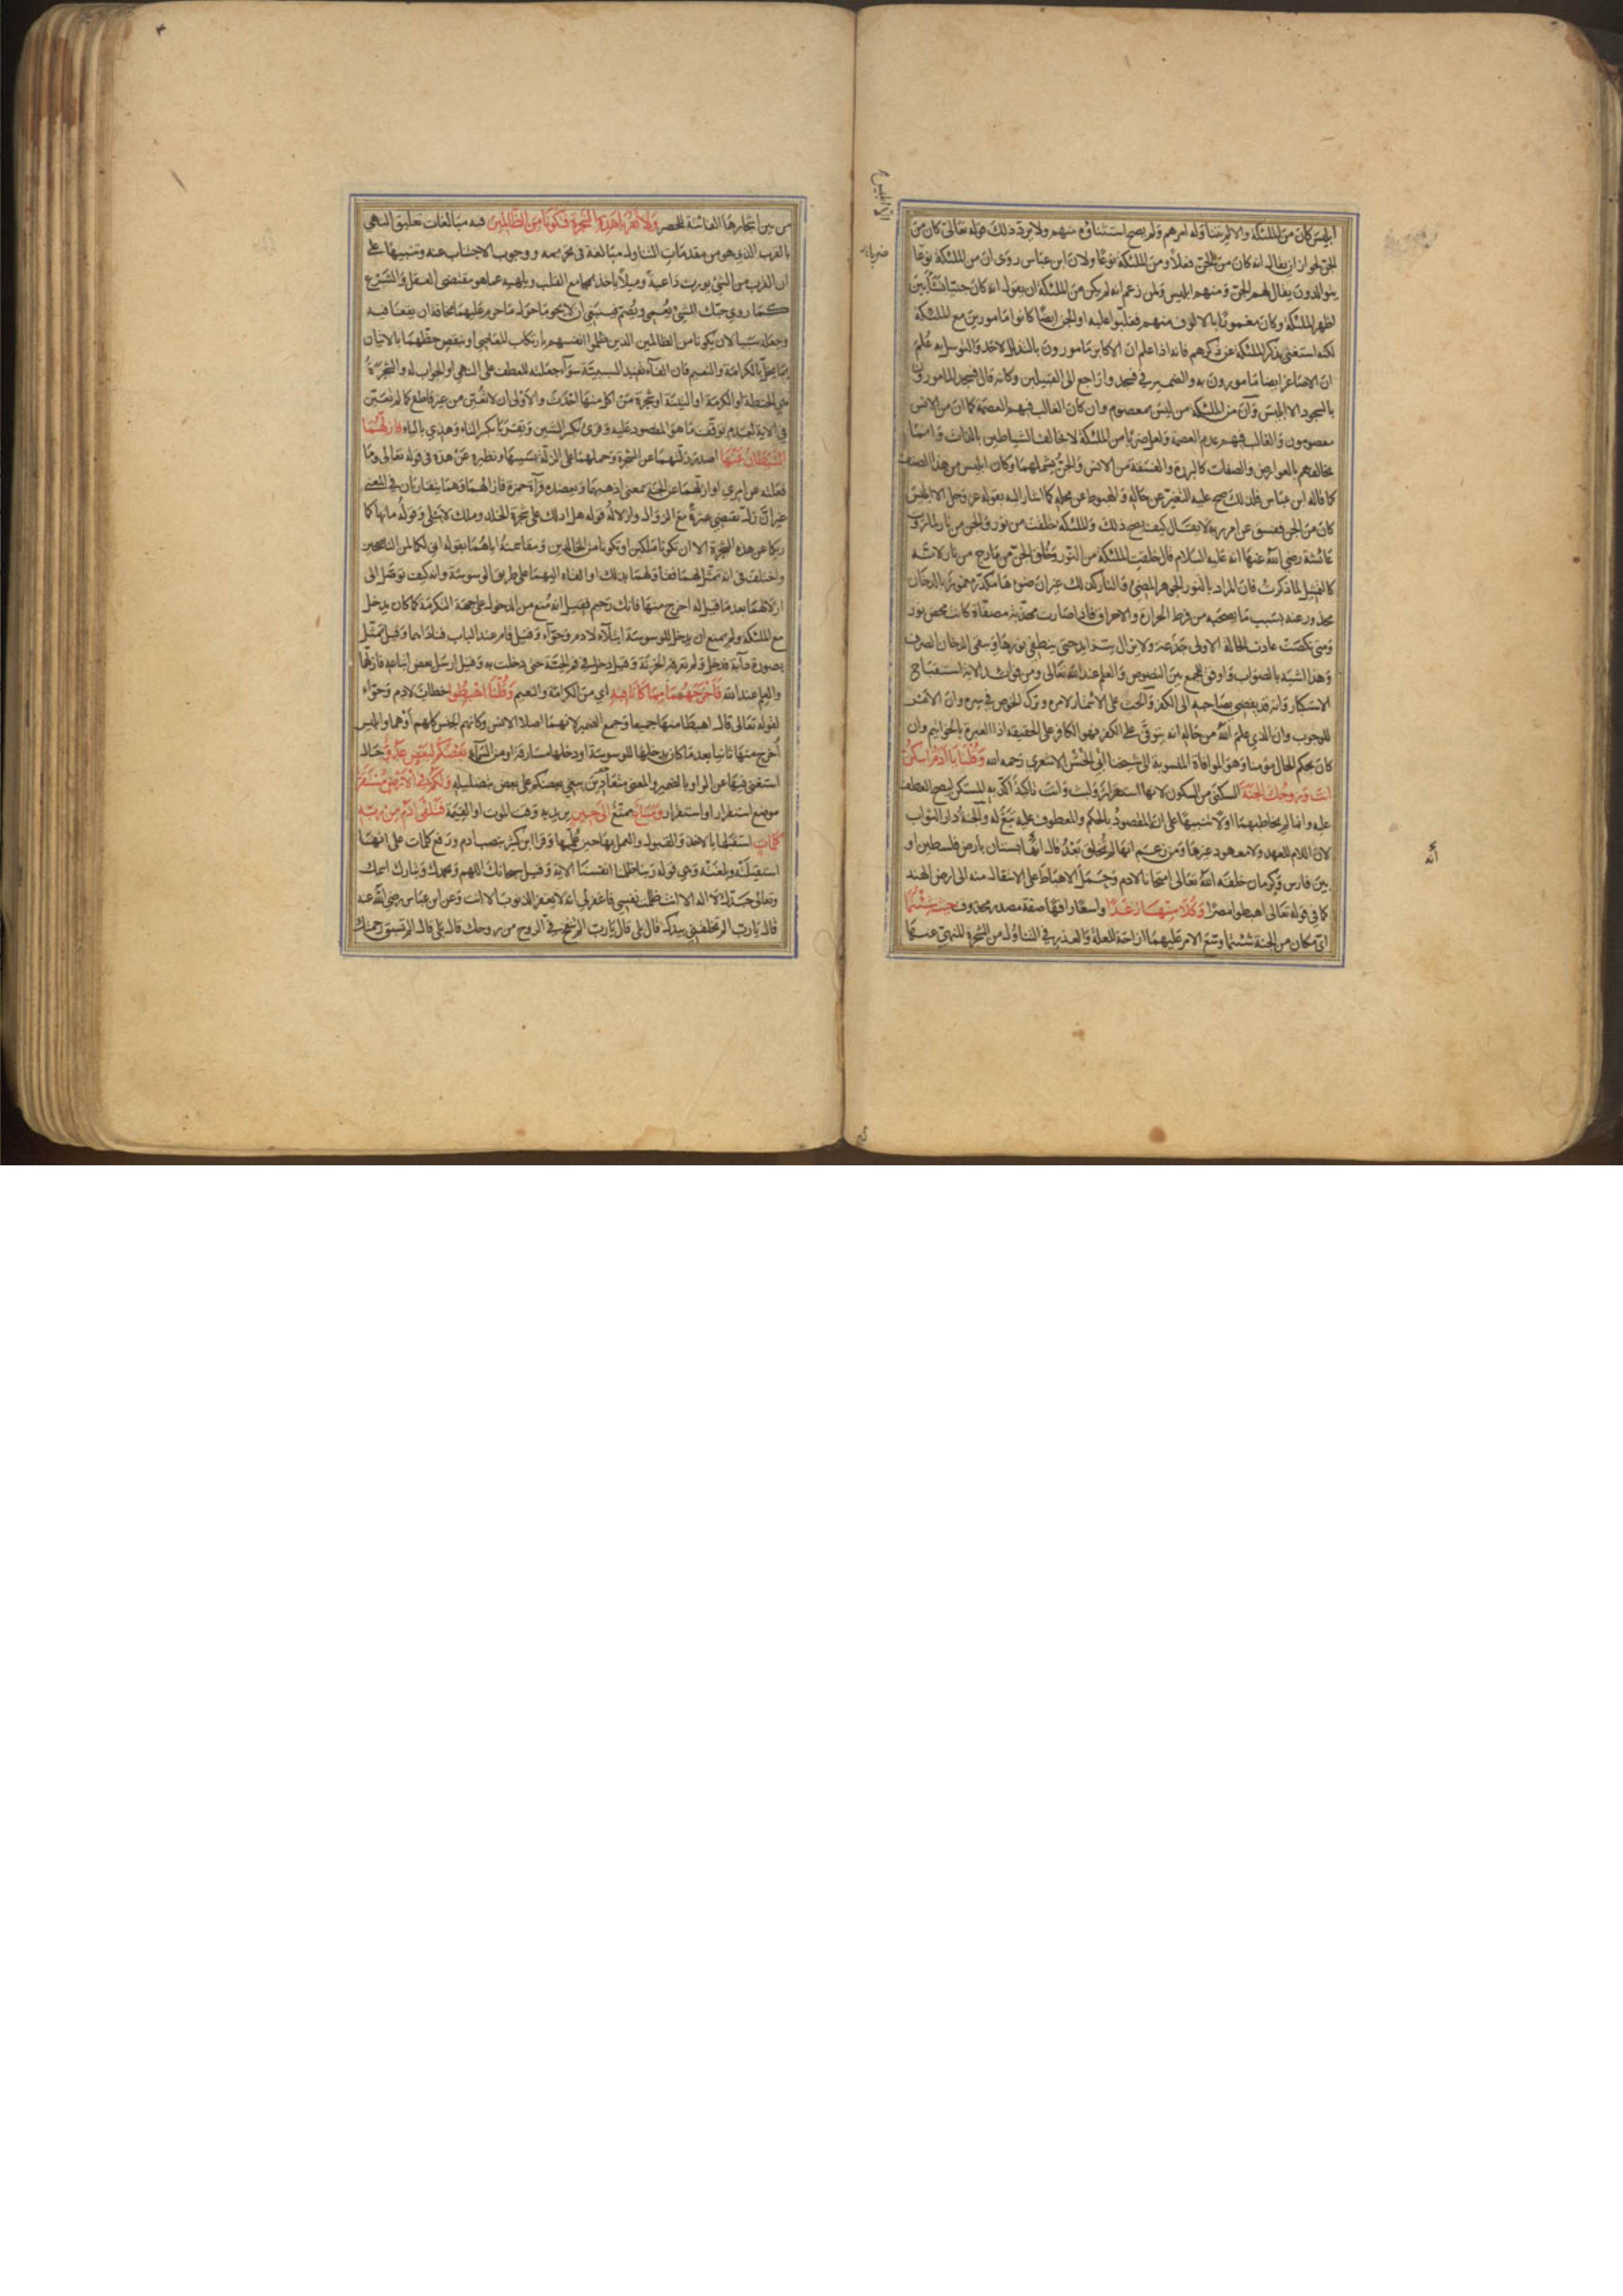 الا ابليس
ضربا
ابليس كان من الملئكة والا لم يتناوله امرهم ولم يصح استثناؤه منهم ولا يرد ذلك قوله تعالى كان من
الجن لجواز ان يقال انه كان من الجن فعلا ومن الملئكة نوعا ولان ابن عباس روى ان من الملئكة نوعا
يتوالدون يقال لهم الجن ومنهم ابليس ولمن زعم انه لم يكن من الملئكة ان يقول انه كان جنيا نشأ بين
اظهر الملئكة وكان مغمورا بالالوف منهم فغلبوا عليه او الجن ايضا كانوا مامورين مع الملئكة
لكنه استغنى بذكر الملئكة عن ذكرهم فانه اذا علم ان الاكابر مامورون بالتذلل لاحد والتوسل به علم
ان الاصاغر ايضا مامورون به والضمير في فسجدوا راجع الى القبيلين وكانه قال فسجد المامورون
بالسجود الا ابليس وان من الملئكة من ليس بمعصوم وان كان الغالب فيهم العصمة كما ان من الانس
معصومون والغالب فيهم عدم العصمة ولعل ضربا من الملئكة لا يخالف الشياطين بالذات وانما
يخالفهم بالعوارض والصفات كالبررة والفسقة من الانس والجن يشملهما وكان ابليس من هذا الصنف
كما قاله ابن عباس فلذلك صح عليه التغير عن حاله والهبوط عن محله كما اشار اليه بقوله عز وجل الا ابليس
كان من الجن ففسق عن امر ربه لا يقال كيف يصح ذلك والملئكة خلقت من نور والجن من نار لما روت
عائشة رضي الله عنها انه عليه السلام قال خلقت الملئكة من النور وخلق الجن من مارج من نار لانه
كالتمثيل لما ذكرت فان المراد بالنور الجوهر المضئ والنار كذلك غير ان ضوءها مكدر مغمور بالدخان
محذور عنه بسبب ما يصحبه من فرط الحرارة والاحراق فاذا صارت مهذبة مصفاة كانت محض نور
ومتى نكصت عادت الحالة الاولى جذعة ولا تزال يتزايد حتى ينطفى نورها ويبقى الدخان الصرف
وهذا اشبه بالصواب واوفق للجمع بين النصوص والعلم عند الله تعالى ومن فوائد الاية استقباح
الاستكبار وانه قد يفضي بصاحبه الى الكفر والحث على الائتمار لامره وترك الخوض في سره وان الامر
للوجوب وان الذي علم الله من حاله انه يتوفى على الكفر فهو الكافر على الحقيقة اذ العبرة بالخواتيم وان
كان بحكم الحال مؤمنا وهو الموافاة المنسوبة الى شيخنا ابي الحسن الاشعري رحمه الله وقلنا يا ادم اسكن
انت وزوجك الجنة السكنى من السكون لانها استقرار ولبث وانت تاكيد اكد به المستكن ليصح العطف
عليه وانما لم يخاطبهما اولا تنبيها على انه المقصود بالحكم والمعطوف عليه تبع له والجنة دار الثواب
لان اللام للعهد ولا معهود غيرها ومن زعم انها لم تخلق بعد قال انها بستان بارض فلسطين او
بين فارس وكرمان خلقه الله تعالى امتحانا لادم وحمل الاهباط على الانتقال منه الى ارض الهند
كما في قوله تعالى اهبطوا مصرا وكلا منها رغدا واسعا رافها صفة مصدر محذوف حيث شئتما
اي مكان من الجنة شئتما وسع الامر عليهما ازاحة للعلة والعذر في التناول من الشجرة المنهي عنها
انه
من بين اشجارها الفائتة للحصر ولا تقربا هذه الشجرة فتكونا من الظالمين فيه مبالغات تعليق النهي
بالقرب الذي هو من مقدمات التناول مبالغة في تحريمه ووجوب الاجتناب عنه وتنبيها على
ان القرب من الشئ يورث داعية وميلا ياخذ بمجامع القلب ويلهيه عما هو مقتضى العقل والشرع
كما روي حبك الشئ يعمي ويصم فينبغي ان لا يحوما حول ما حرم عليهما مخافة ان يقعا فيه
وجعله سببا لان يكونا من الظالمين الذين ظلموا انفسهم بارتكاب المعاصي او بنقص حظهما بالاتيان
بما يخل بالكرامة والنعيم فان الفاء تفيد السببية سواء جعلته للعطف على النهي او الجواب له والشجرة
هي الحنطة او الكرمة او التينة او شجرة من اكل منها احدث والاولى ان لا تعين من غير قاطع كما لم تعين
في الاية لعدم توقف ما هو المقصود عليه وقرئ بكسر الشين وتقربا بكسر التاء وهذي بالياء فازلهما
الشيطان عنها اصدر زلتهما عن الشجرة وحملهما على الزلة بسببها ونظيره عن هذه في قوله تعالى وما
فعلته عن امري او ازلهما عن الجنة بمعنى اذهبهما ويعضده قراءة حمزة فازالهما وهما متقاربان في المعنى
غير ان زل تقتضي عثرة مع الزوال وازلاله قوله هل ادلك على شجرة الخلد وملك لا يبلى وقوله ما نهاكما
ربكما عن هذه الشجرة الا ان تكونا ملكين او تكونا من الخالدين ومقاسمته اياهما بقوله اني لكما لمن الناصحين
واختلف في انه تمثل لهما فقاولهما بذلك او القاه اليهما على طريق الوسوسة وانه كيف توصل الى
ازلالهما بعد ما قيل له اخرج منها فانك رجيم فقيل انه منع من الدخول على جهة التكرمة كما كان يدخل
مع الملئكة ولم يمنع ان يدخل للوسوسة ابتلاء لادم وحواء وقيل قام عند الباب فناداهما وقيل تمثل
بصورة دابة فدخل ولم تعرفه الخزنة وقيل دخل في فم الحية حتى دخلت به وقيل ارسل بعض اتباعه فازلهما
والعلم عند الله فاخرجهما مما كانا فيه اي من الكرامة والنعيم وقلنا اهبطوا خطاب لادم وحواء
لقوله تعالى قال اهبطا منها جميعا وجمع الضمير لانهما اصلا الانس وكانهم الجنس كلهم او هما وابليس
اخرج منها ثانيا بعد ما كان يدخلها للوسوسة او دخلها مسارقة او من السماء بعضكم لبعض عدو حال
استغنى فيها عن الواو بالضمير والمعنى متعادين يبغي بعضكم على بعض بتضليله ولكم في الارض مستقر
موضع استقرار او استقرار ومتاع تمتع الى حين يريد به وقت الموت او القيمة فتلقى ادم من ربه
كلمات استقبلها بالاخذ والقبول والعمل بها حين علمها وقرا ابن كثير بنصب ادم ورفع كلمات على انها
استقبلته وبلغته وهي قوله ربنا ظلمنا انفسنا الاية وقيل سبحانك اللهم وبحمدك وتبارك اسمك
وتعالى جدك لا اله الا انت ظلمت نفسي فاغفر لي انه لا يغفر الذنوب الا انت وعن ابن عباس رضي الله عنه
قال يا رب الم تخلقني بيدك قال بلى قال يا رب الم تنفخ في الروح من روحك قال بلى قال الم تسبق رحمتك